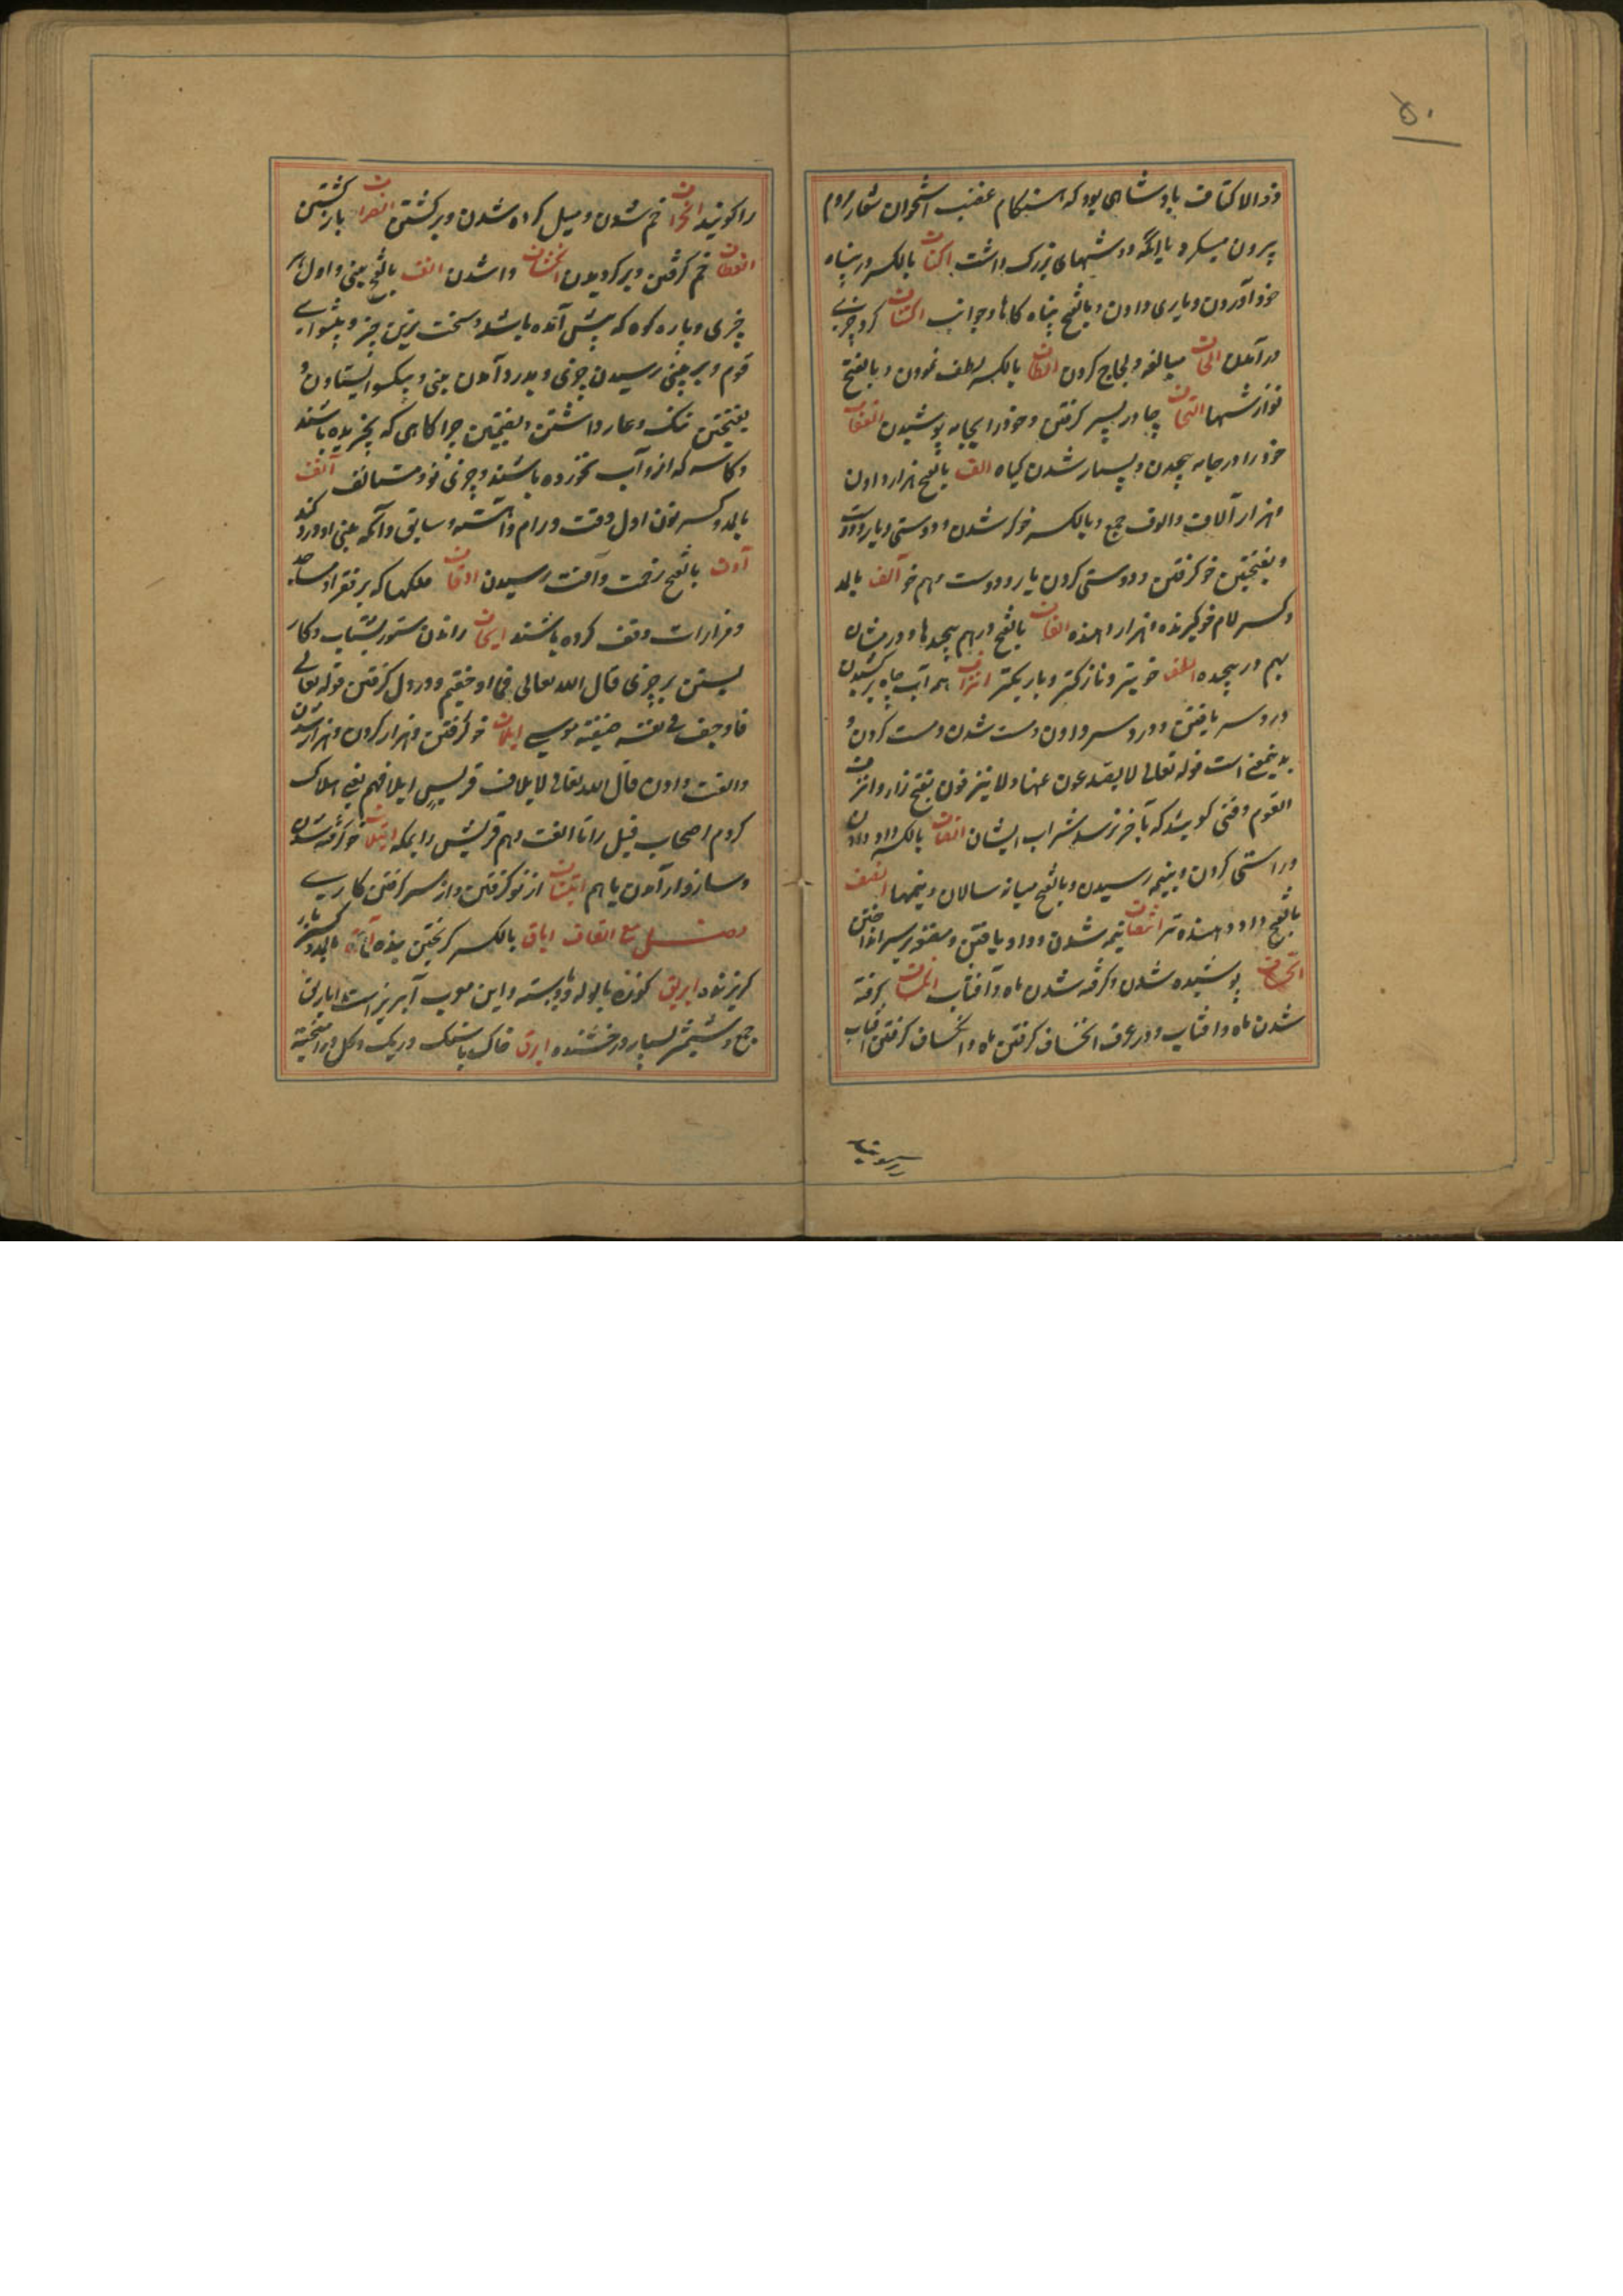 ۵۰
ذو الاکتاف بادشاهی بود که هنگام غضب استخوان شمار مردم
بیرون میکرد یا انکه دوشهای بزرک داشت اکناف بالکسر در پناه
خود آوردن و یاری دادن و بالفتح پناه کاها و جوانب اکتناف کرد چیزی
در آمدن الحاف مبالغه و لجاج کردن الطاف بالکسر لطف نمودن و بالفتح
نوازشها التحاف چادر بسر کرفتن و خود را بجامه پوشیدن التفاف
خود را در جامه پیچیدن و بسیار شدن کیاه الف بالفتح هزار دادن
و هزار آلاف و الوف جمع و بالکسر خوکر شدن و دوستی و یار و دوست
و بفتحتین خو کرفتن و دوستی کردن یار و دوست و هم خو آلف بالمد
و کسر لام خو کیرنده و هزار دهنده الفاف بالفتح درهم پیچیدها و درختان
بهم در پیچیده الطف خوبتر و نازکتر و باریکتر انزاف همه آب چاه بر کشیدن
درد سر یافتن و درد سر دادن و مست شدن و مست کردن و
بدینمعنی است قوله تعالی لا یصدعون عنها و لا ینزفون بفتح زا و انزاف
القوم وقتی کویند که بآخر رسد شراب ایشان انصاف بالکسر داد دادن
و راستی کردن و بنیمه رسیدن و بالفتح میانه سالان و نیمها انصف
بالفتح داد دهنده تر انتصاف نیمه شدن و داد یافتن و مقنع بر سر انداختن
پوشیده شدن و کرفته شدن ماه و آفتاب انکساف کرفته
شدن ماه و آفتاب و در عرف انخساف کرفتن ماه و انکساف کرفتن آفتاب
را کویند انحراف خم شدن و میل کرده شدن و بر کشتن انصراف باز کشتن
انعطاف خم کرفتن و بر کردیدن انکشاف وا شدن انف بالفتح بینی و اول هر
چیزی و پاره کوه که پیش آمده باشد و سخت ترین چیز و پیشوای
قوم و بر بینی رسیدن چیزی و بدرد آمدن بینی و بیکسو ایستادن و
بفتحتین ننک و عار داشتن و بضمتین چراکاهی که نچریده باشند
و کاسه که ازو آب نخورده باشند و چیزی نو و مستانف آنف
بالمد و کسر نون اول وقت و رام و آهسته و سابق و آنکه بینی او درد کند
آوف بالفتح زحمت و آفت رسیدن اوقاف ملکها که بر فقرا و مساجد
و مزارات وقف کرده باشند ایجاف راندن ستور بشتاب و کار
بستن بر چیزی قال الله تعالی فما اوجفتم و در دل کرفتن قوله تعالی
فاوجف فی نفسه خیفته موسی ایلاف خو کرفتن و هزار کردن و هزار شدن
و الفت دادن قال الله تعالی لایلاف قریش ایلافهم یعنی هلاک
کردم اصحاب فیل را تا الفت دهم قریش را بمکه ایتلاف خو کرفته شدن
و سازوار آمدن باهم ایتناف از نو کرفتن و از سر کرفتن کاری
فصل مع القاف اباق بالکسر کریختن بنده آبق بالمد و کسر با
کریزنده ابریق کوزه با لوله و دسته و این معرب آبریز است اباریق
جمع و شمشیر بسیار درخشنده ابرق خاک با سنک و ریک و کل در آمیخته
را کویند